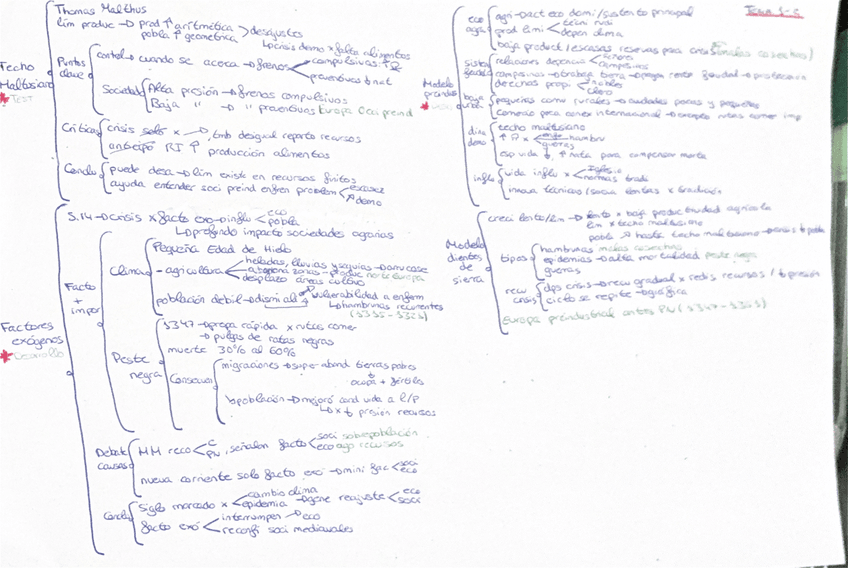 Tema 1-2
Techo Maltusiano
* Test
Thomas Malthus
lim produc → prod ↑ aritmética > desajustes
pobla ↑ geométrica
↳ crisis demo x falta alimentos
Puntos clave
control → cuando se acerca → frenos < compulsivos: ↑
preventivos: ↓ nat
Sociedad
Alta presión → frenos compulsivos
Baja " → " preventivos Europa Occi preind
Críticas
crisis solo x → tmb desigual reparto recursos
anticipó RI ↑ producción alimentos
Conclu
puede desa → lim existe en recursos finitos
ayuda entender soci preind enfren problem < escasez
↑ demo
Factores exógenos
* Desarrollo
Facto + impor
S.14 → crisis x facto exo → influ < eco
pobla
↳ profundo impacto sociedades agrarias
Clima
Pequeña Edad de Hielo
- agricultura < heladas, lluvias y sequías → arruí cose
zonas → norte europa
desplazo áreas cultivo
población débil → dismi al → ↑ vulnerabilidad a enferm
↳ hambrunas recurrentes
(1315-1323)
Peste negra
1347 → propa rápida x rutas comer
→ pulgas de ratas negras
muerte 30% al 60%
Consecuen
migraciones → super abund tierras pobres
↓
ocupa + fértiles
↓ población → mejoró cond vida a l/p
↳ x ↓ presión recursos
Debate causas
MM reco < C
PN, señalan facto < soci sobrepoblación
eco ago recursos
nueva corriente solo facto exo → mini fac < soci
eco
Conclu
siglo marcado x < cambio clima
epidemia → gene reajuste < eco
soci
facto exó < interrumper → eco
reconfi soci medievales
Modelo preindus
eco agra
agri → act eco domi/sustento principal
prod limi < tecni rudi
depen clima
baja product/escasas reservas para crisis (malas cosechas)
sistema feudal
relaciones depencia < señores
campesinos
campesinos → trabaja tierra → paga renta feudal → protección
derechos propi < nobles
clero
baja urba
pequeñas comu rurales → ciudades pocas y pequeñas
comercio para comer internacional → excepto rutas comer imp
dina demo
techo maltusiano
↑ M x < hambru
guerras
esp vida ↓, ↑ nata para compensar morta
influ
vida influ x < Iglesia
normas tradi
innova técnicas/socia lentas x tradición
Modelo dientes de sierra
creci lento/lim → lento x baja productividad agrícola
lim x techo maltusiano
pobl ↗ hasta techo maltusiano → crisis ↓ pobla
tipos
hambrunas malas cosechas
epidemias → alta mortalidad peste negra
guerras
recu crisis
dps crisis → recu gradual x redis recursos / ↓ presión
ciclo se repite → gráfica
Europa preindustrial antes PN (1347-1353)